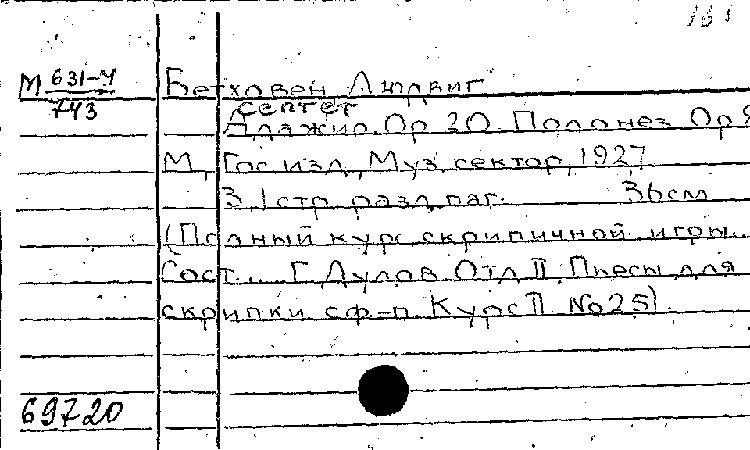 161
М 631-4 Бетховен Людвиг
743 септет
Адажио. Ор 20. Полонез Ор 8
М, Гос. изд. Муз. сектор, 1927
3,1 стр. разд. паг. 36см
(Полный курс скрипичной игры..
Сост.... Г. Дулов. Отл II. Пьесы для
скрипки с ф-п. Курс II № 25)
69720